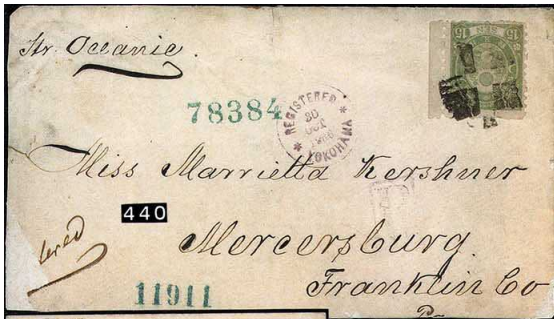 Str. Oceanic.
15 SEN 15
78384
REGISTERED
30
OCT
1886
YOKOHAMA
Miss Marrietta Kershner
440
Mercersburg
Franklin Co
Pa
11911